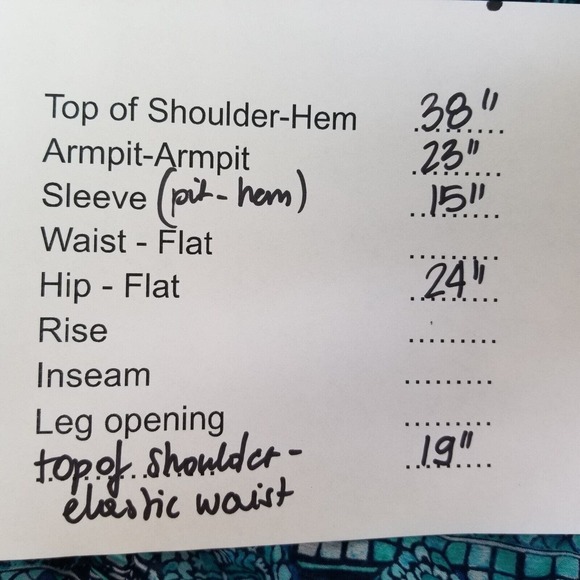 Top of Shoulder-Hem 38"
Armpit-Armpit 23"
Sleeve (pit-hem) 15"
Waist - Flat .........
Hip - Flat 24"
Rise .........
Inseam .........
Leg opening .........
top of shoulder- 19"
elastic waist